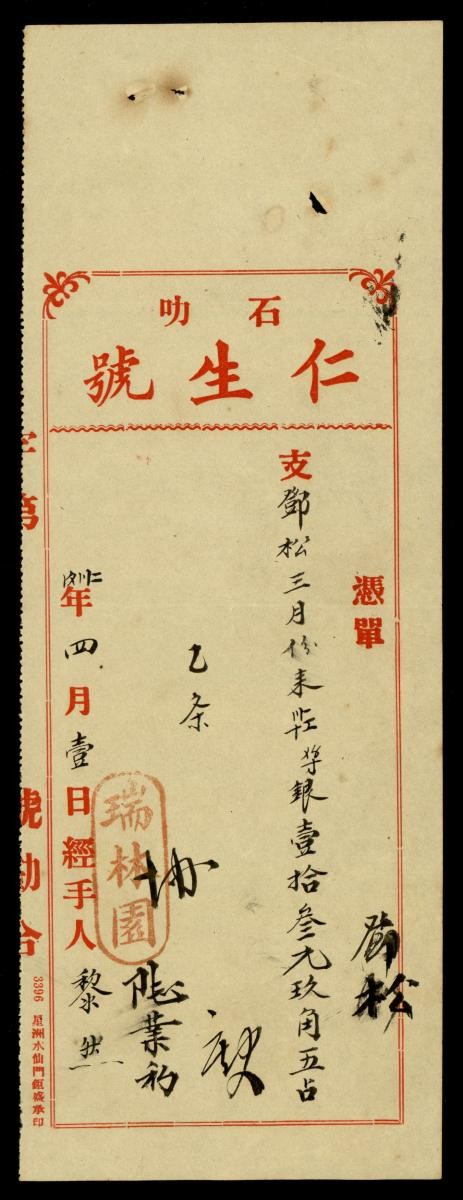 石叻
仁生號
憑單
鄧松
支鄧松三月份來
單銀壹拾叁元玖角五占
乙条
瑞林園
年四月壹日經手人黎
字第 號勘合
3396 星洲水仙門鉅盛承印